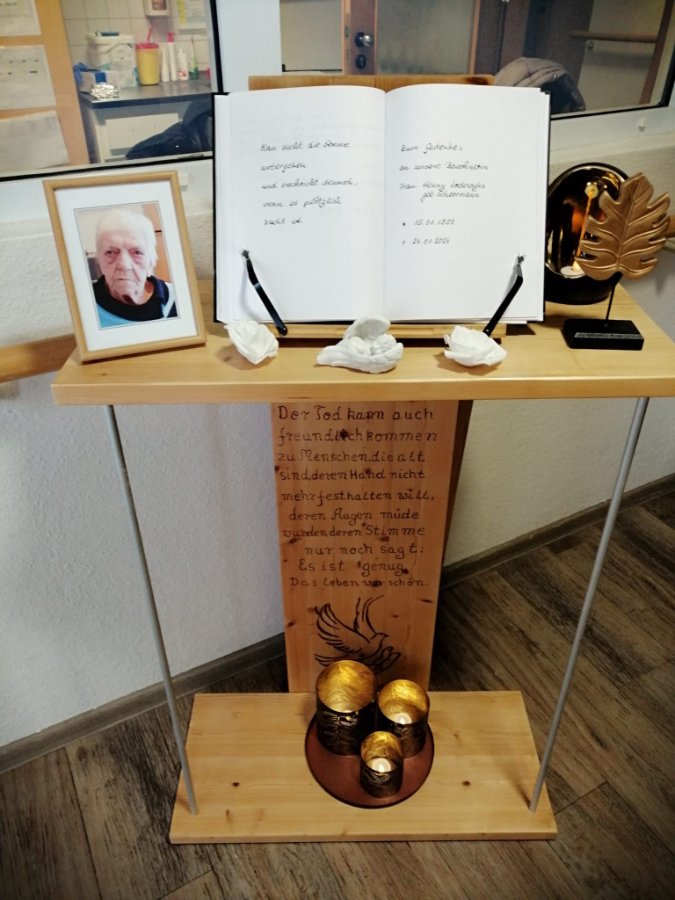 Man sieht die Sonne
untergehen
und erschrickt dennoch,
wenn es plötzlich
Nacht ist.
Zum Gedenken
an unsere Bewohnerin
Frau Henny
geb.
* 15.01.1927
† 24.01.2024
Der Tod kann auch
freundlich kommen
zu Menschen, die alt
sind, deren Hand nicht
mehr festhalten will,
deren Augen müde
wurden, deren Stimme
nur noch sagt:
Es ist genug.
Das Leben war schön.